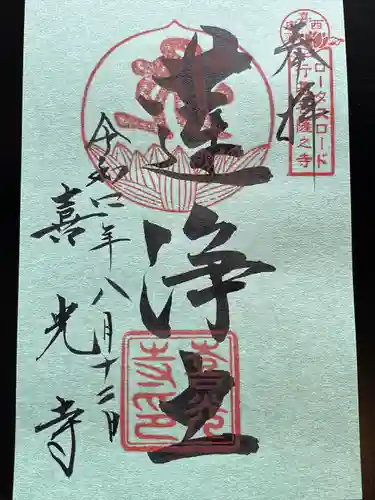 奉拝
ロータスロード
蓮浄土
令和四年八月十二日
喜光寺